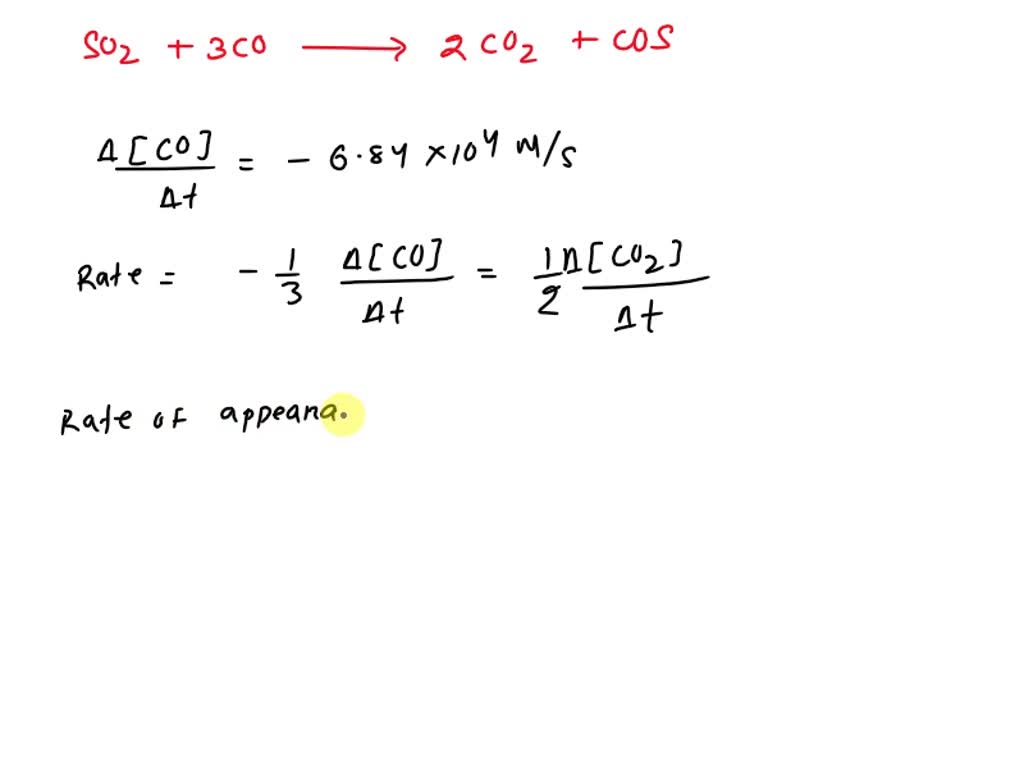 SO2 + 3CO ⟶ 2CO2 + COS
Δ[CO]/Δt = - 6.84 ×10^4 M/s
Rate = - 1/3 Δ[CO]/Δt = 1/2 Δ[CO2]/Δt
Rate of appeara.